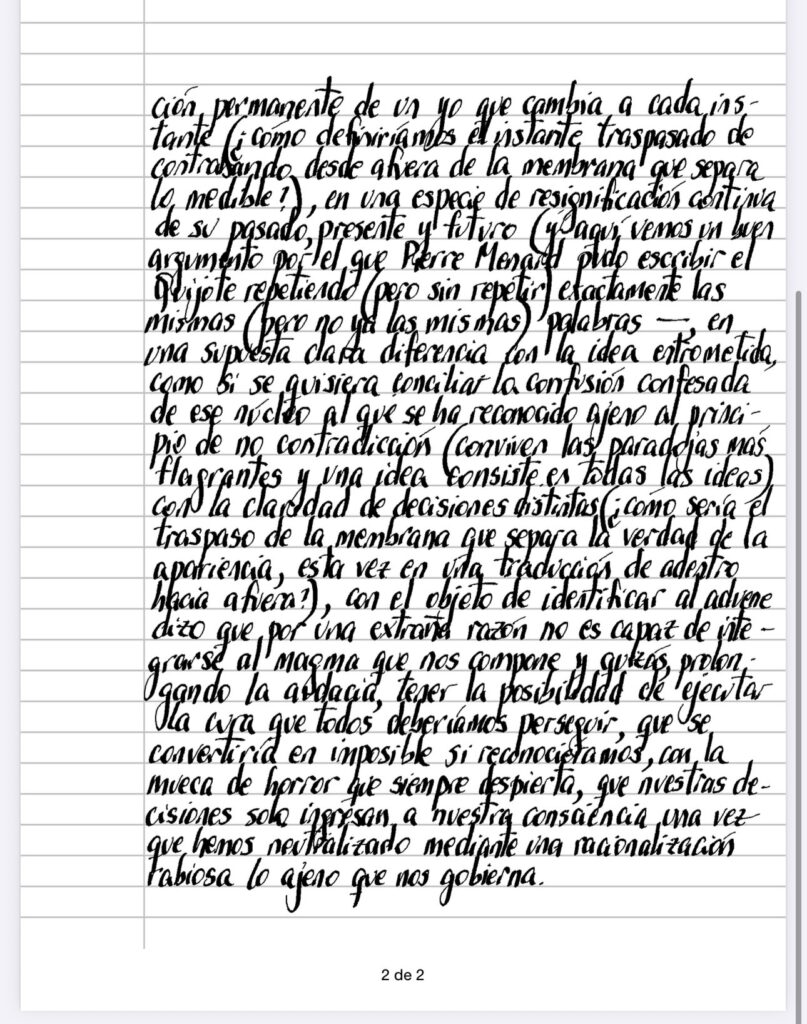 ción permanente de un yo que cambia a cada ins-
tante (¿cómo definiríamos el instante traspasado de
contrabando desde afuera de la membrana que separa
lo medible?), en una especie de resignificación continua
de su pasado, presente y futuro (y aquí vemos un buen
argumento por el que Pierre Menard pudo escribir el
Quijote repitiendo (pero sin repetir) exactamente las
mismas (pero no ya las mismas) palabras —, en
una supuesta clara diferencia con la idea entrometida,
como si se quisiera conciliar la confusión confesada
de ese núcleo al que se ha reconocido ajeno al princi-
pio de no contradicción (conviven las paradojas más
flagrantes y una idea consiste en todas las ideas)
con la claridad de decisiones distintas (¿cómo sería el
traspaso de la membrana que separa la verdad de la
apariencia, esta vez en una traducción de adentro
hacia afuera?), con el objeto de identificar al advene
dizo que por una extraña razón no es capaz de inte-
grarse al magma que nos compone y quizás, prolon-
gando la audacia, tener la posibilidad de ejecutar
la cura que todos deberíamos perseguir, que se
convertiría en imposible si reconociéramos, con la
mueca de horror que siempre despierta, que nuestras de-
cisiones solo ingresan a nuestra consciencia una vez
que hemos neutralizado mediante una racionalización
rabiosa lo ajeno que nos gobierna.
2 de 2